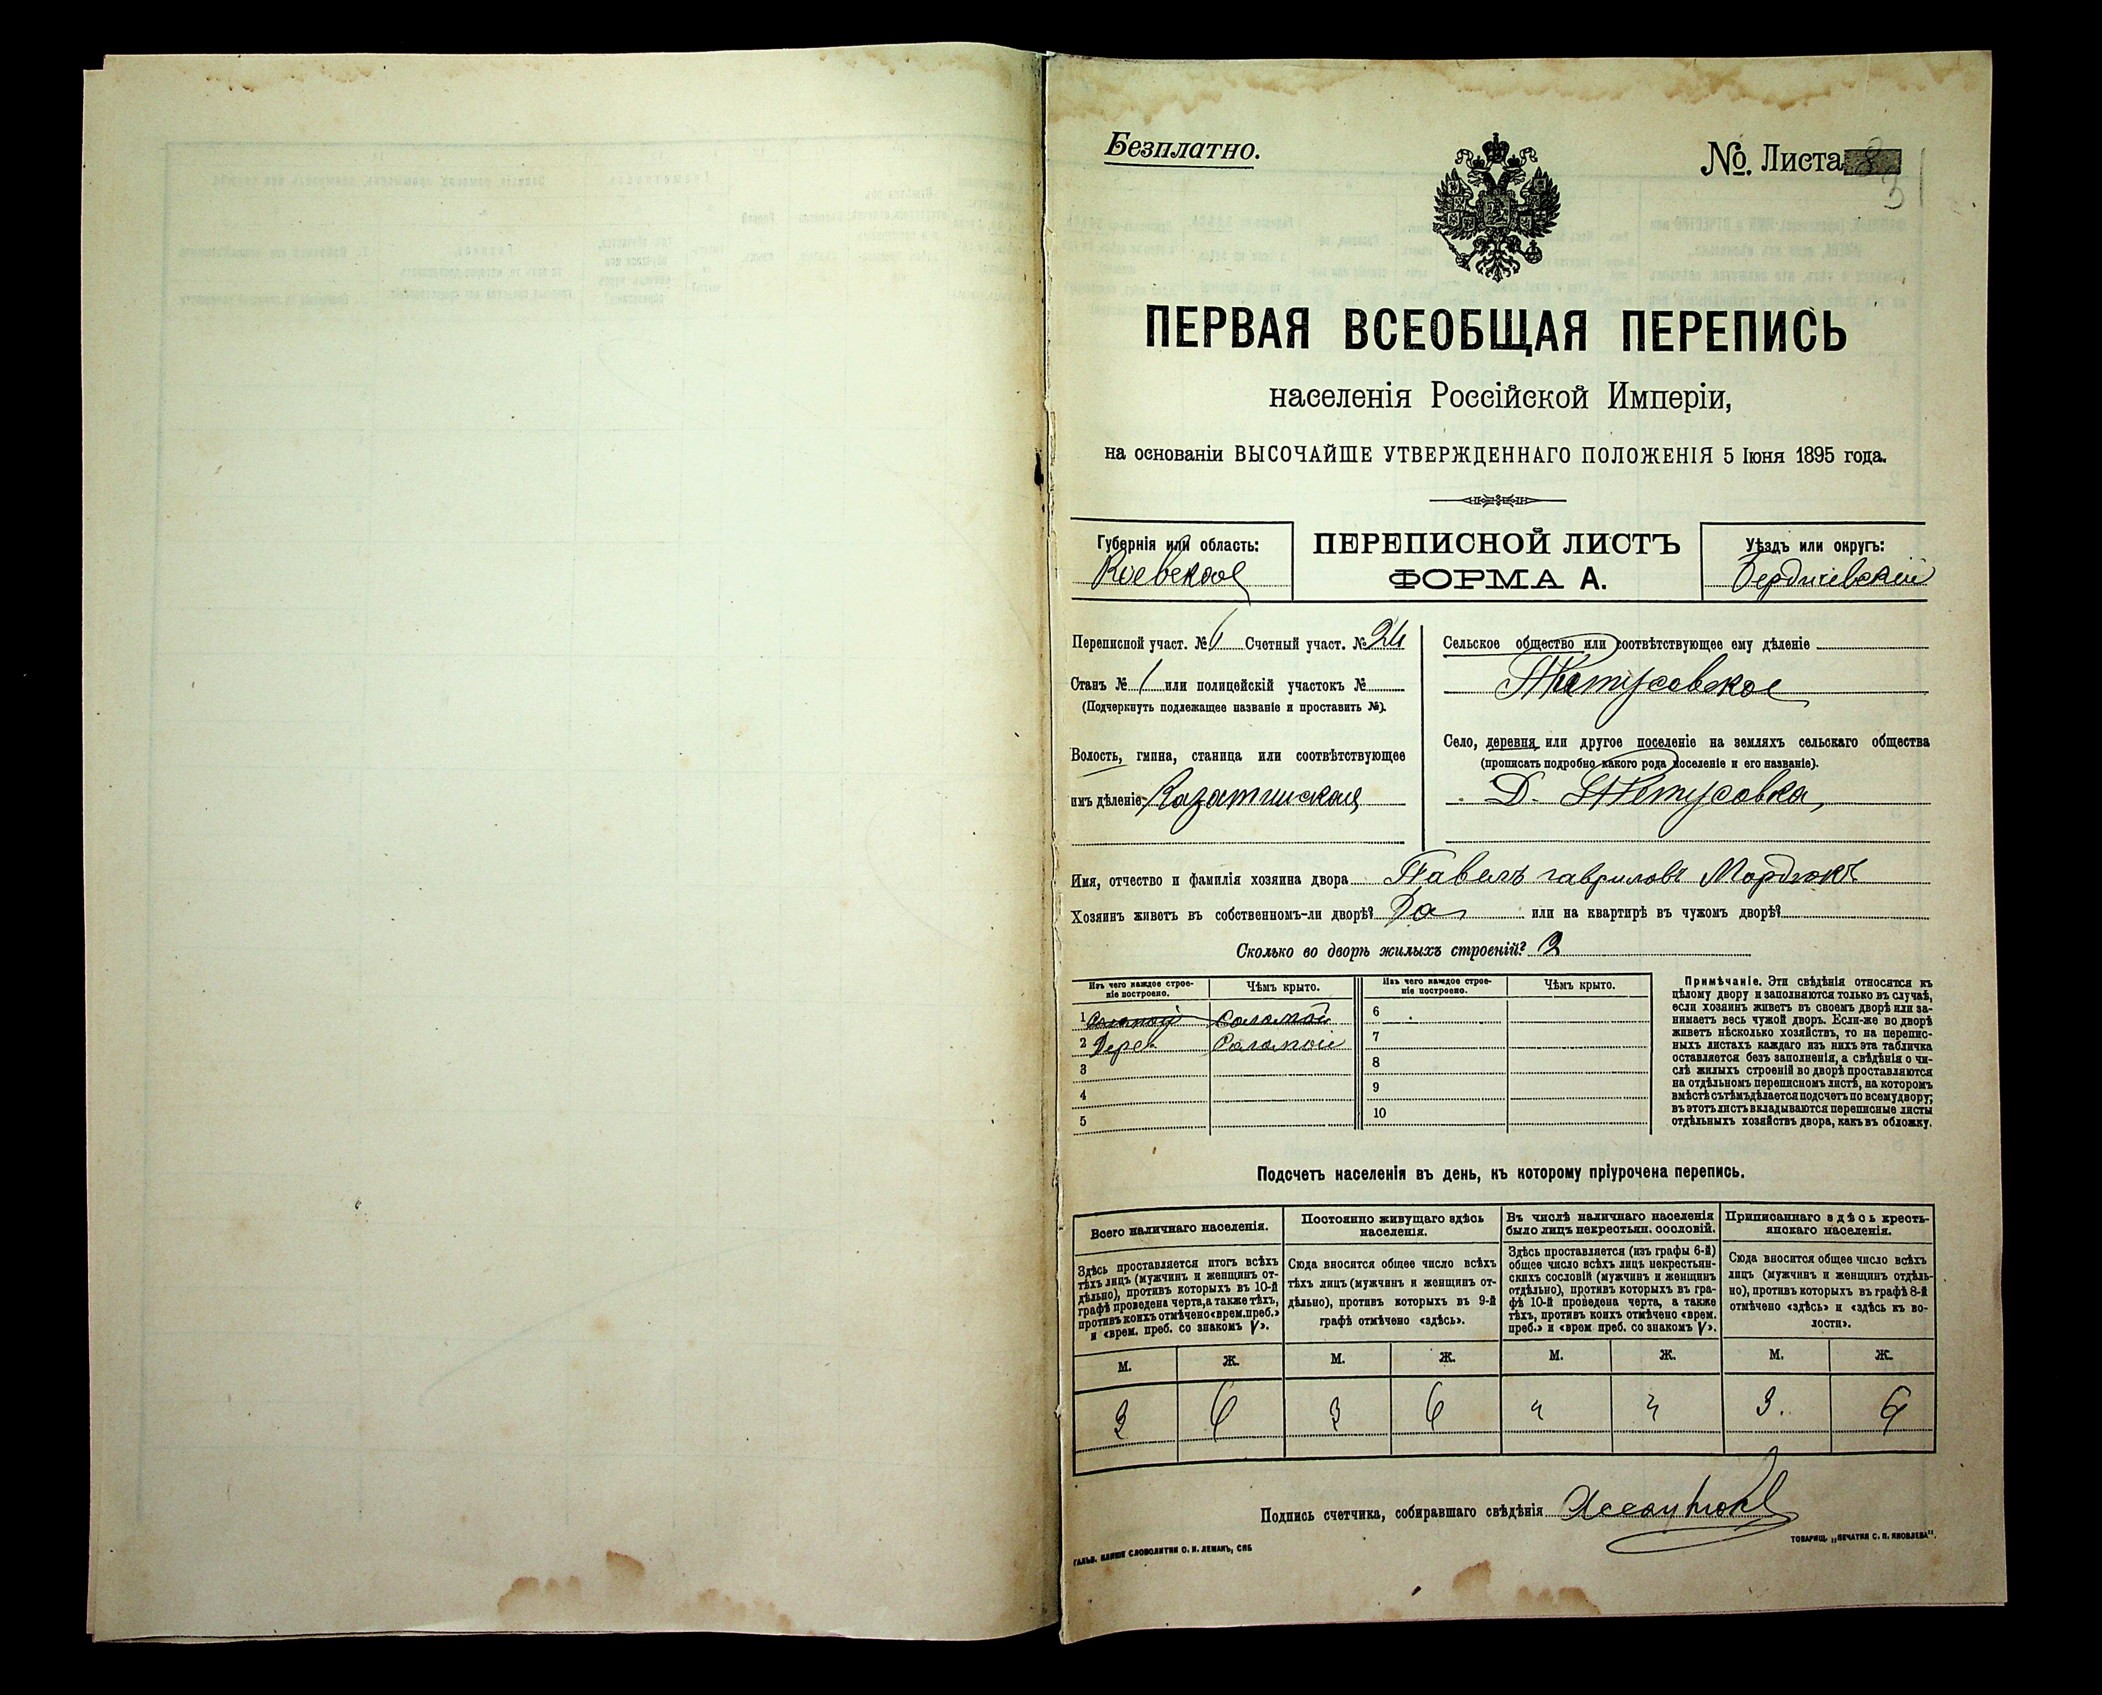 Безплатно.
№. Листа
ПЕРВАЯ ВСЕОБЩАЯ ПЕРЕПИСЬ
населенія Россійской Имперіи,
на основаніи ВЫСОЧАЙШЕ УТВЕРЖДЕННАГО ПОЛОЖЕНІЯ 5 Іюня 1895 года.
Губернія или область:
Киевская
ПЕРЕПИСНОЙ ЛИСТЪ
ФОРМА А.
Уѣздъ или округъ:
Бердичевскій
Переписной участ. № 6 Счетный участ. № 24
Станъ № 1 или полицейскій участокъ №
(Подчеркнуть подлежащее названіе и проставить №).
Волость, гмина, станица или соотвѣтствующее
имъ дѣленіе: Казатинская
Сельское общество или соотвѣтствующее ему дѣленіе
Село, деревня или другое поселеніе на земляхъ сельскаго общества
(прописать подробно какого рода поселеніе и его названіе).
Д.
Имя, отчество и фамилія хозяина двора Павелъ Гавриловъ Мордюкъ
Хозяинъ живетъ въ собственномъ-ли дворѣ? Да или на квартирѣ въ чужомъ дворѣ?
Сколько во дворѣ жилыхъ строеній? 2
Изъ чего каждое строе-
ніе построено.
Чѣмъ крыто.
Изъ чего каждое строе-
ніе построено.
Чѣмъ крыто.
1 соломой
2 Дерев. Соломой
3
4
5
6
7
8
9
10
Примѣчаніе. Эти свѣдѣнія относятся къ
цѣлому двору и заполняются только въ случаѣ,
если хозяинъ живетъ въ своемъ дворѣ или за-
нимаетъ весь чужой дворъ. Если-же во дворѣ
живетъ нѣсколько хозяйствъ, то на перепис-
ныхъ листахъ каждаго изъ нихъ эта табличка
оставляется безъ заполненія, а свѣдѣнія о чи-
слѣ жилыхъ строеній во дворѣ проставляются
на отдѣльномъ переписномъ листѣ, на которомъ
вмѣстѣ съ тѣмъ дѣлается подсчетъ по всему двору;
въ этотъ листъ вкладываются переписные листы
отдѣльныхъ хозяйствъ двора, какъ въ обложку.
Подсчетъ населенія въ день, къ которому пріурочена перепись.
Всего наличнаго населенія.
Здѣсь проставляется итогъ всѣхъ
тѣхъ лицъ (мужчинъ и женщинъ от-
дѣльно), противъ которыхъ въ 10-й
графѣ проведена черта, а также тѣхъ,
противъ коихъ отмѣчено «врем. преб.»
и «врем. преб. со знакомъ V».
Постоянно живущаго здѣсь
населенія.
Сюда вносится общее число всѣхъ
тѣхъ лицъ (мужчинъ и женщинъ от-
дѣльно), противъ которыхъ въ 9-й
графѣ отмѣчено «здѣсь».
Въ числѣ наличнаго населенія
было лицъ некрестьян. сословій.
Здѣсь проставляется (изъ графы 6-й)
общее число всѣхъ лицъ некрестьян-
скихъ сословій (мужчинъ и женщинъ
отдѣльно), противъ которыхъ въ гра-
фѣ 10-й проведена черта, а также
тѣхъ, противъ коихъ отмѣчено «врем.
преб.» и «врем. преб. со знакомъ V».
Приписаннаго здѣсь кресть-
янскаго населенія.
Сюда вносится общее число всѣхъ
лицъ (мужчинъ и женщинъ отдѣль-
но), противъ которыхъ въ графѣ 8-й
отмѣчено «здѣсь» и «здѣсь къ во-
лости».
М. Ж. М. Ж. М. Ж. М. Ж.
3 6 3 6 " " 3. 6
Подпись счетчика, собиравшаго свѣдѣнія
ГАЛЬВ. КЛИШЕ СЛОВОЛИТНИ О. И. ЛЕМАНЪ, СПБ
ТОВАРИЩ. „ПЕЧАТНЯ С. П. ЯКОВЛЕВА".